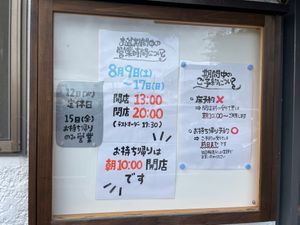 お盆期間中の
営業時間について
8月9日(土)
～17日(日)
開店 13:00
閉店 20:00
(ラストオーダー 19:30)
お持ち帰りは
朝10:00 開店
です
12日(火)
定休日
15日(金)
お持ち帰り
のみ営業
期間中の
ご予約について
・席予約 ×
・お持ち帰り予約 ○
前日まで